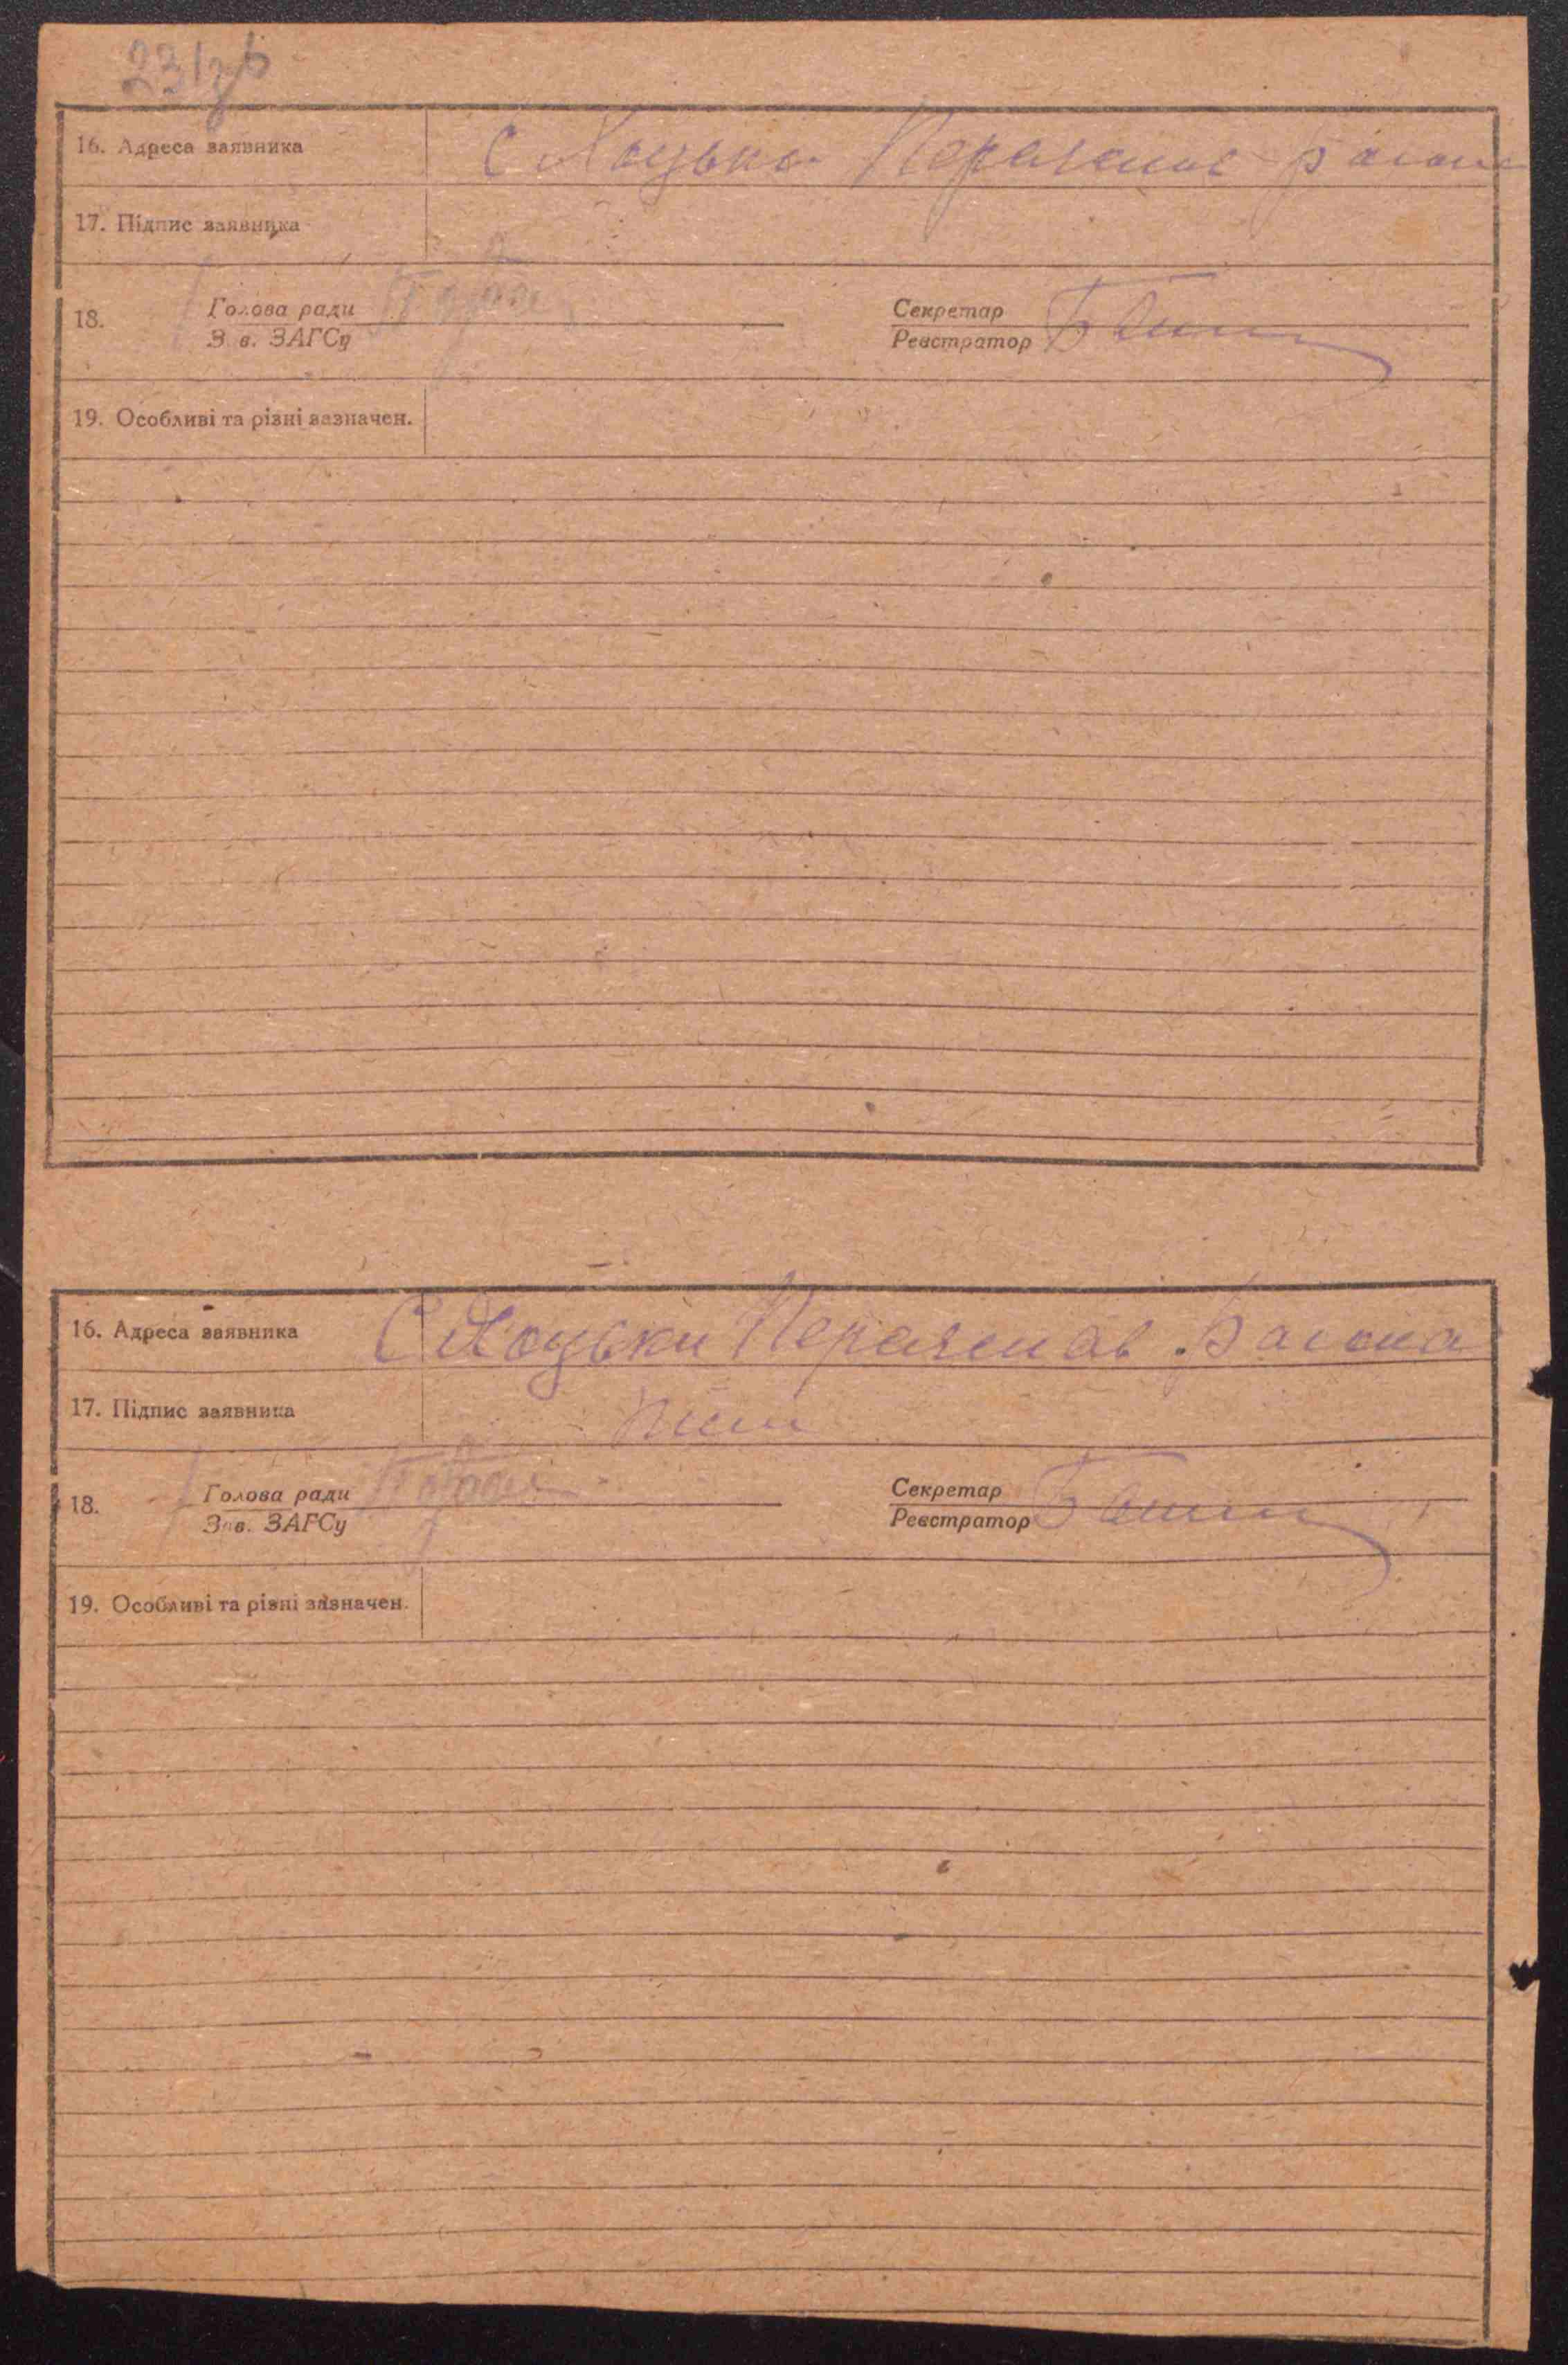 23/зв
16. Адреса заявника С Хоцьки Переяслав района
17. Підпис заявника
18. Голова ради Секретар
Зав. ЗАГСу Реєстратор
19. Особливі та різні зазначен.
16. Адреса заявника С Хоцьки Переяслав района
17. Підпис заявника
18. Голова ради Секретар
Зав. ЗАГСу Реєстратор
19. Особливі та різні зазначен.